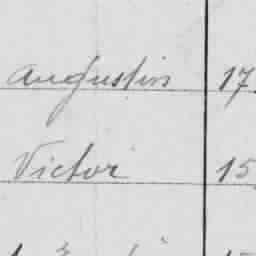 Augustin 17
Victor 15